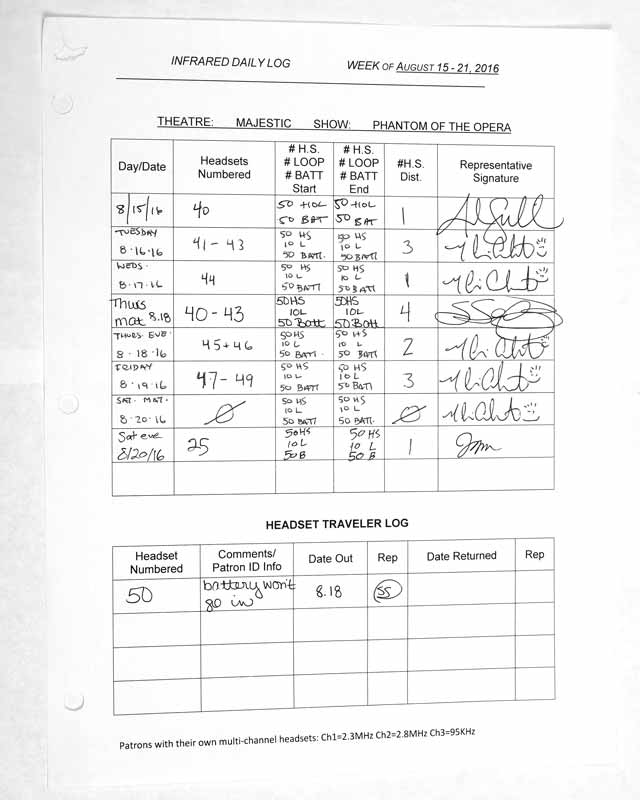 INFRARED DAILY LOG WEEK OF AUGUST 15 - 21, 2016
THEATRE: MAJESTIC SHOW: PHANTOM OF THE OPERA
Day/Date Headsets Numbered # H.S. # LOOP # BATT Start # H.S. # LOOP # BATT End #H.S. Dist. Representative Signature
8/15/16 40 50 +10L 50 BAT 50 +10L 50 BAT 1
TUESDAY 8·16·16 41 - 43 50 HS 10 L 50 BATT. 50 HS 10 L 50 BATT. 3
WEDS. 8·17·16 44 50 HS 10 L 50 BATT 50 HS 10 L 50 BATT 1
Thurs mat 8.18 40 - 43 50HS 10L 50 Batt 50HS 10L 50 Batt 4
THURS. EVE. 8·18·16 45 + 46 50 HS 10 L 50 BATT. 50 HS 10 L 50 BATT. 2
FRIDAY 8·19·16 47 - 49 50 HS 10 L 50 BATT 50 HS 10 L 50 BATT 3
SAT. MAT. 8·20·16 Ø 50 HS 10 L 50 BATT. 50 HS 10 L 50 BATT. Ø
Sat eve 8/20/16 25 50HS 10 L 50 B 50 HS 10 L 50 B 1
HEADSET TRAVELER LOG
Headset Numbered Comments/ Patron ID Info Date Out Rep Date Returned Rep
50 battery won't go in 8.18 SS
Patrons with their own multi-channel headsets: Ch1=2.3MHz Ch2=2.8MHz Ch3=95KHz